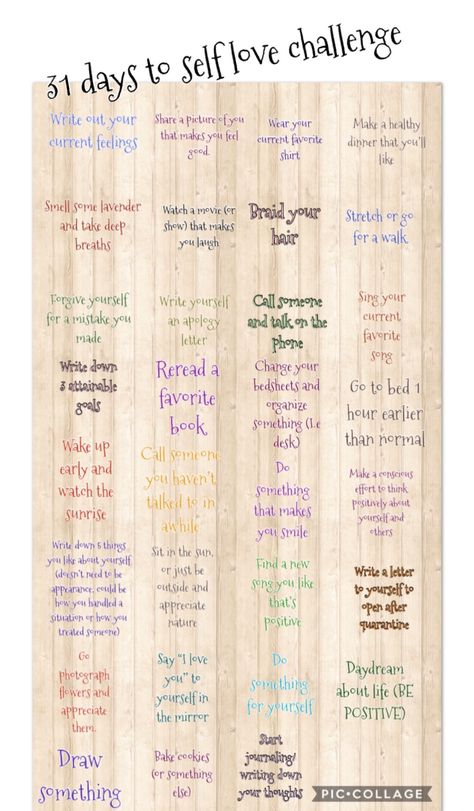 31 days to self love challenge
Write out your
current feelings
Share a picture of you
that makes you feel
good.
Wear your
current favorite
shirt
Make a healthy
dinner that you'll
like
Smell some lavender
and take deep
breaths
Watch a movie (or
show) that makes
you laugh
Braid your
hair
Stretch or go
for a walk
Forgive yourself
for a mistake you
made
Write yourself
an apology
letter
Call someone
and talk on the
phone
Sing your
current
favorite
song
Write down
3 attainable
goals
Reread a
favorite
book
Change your
bedsheets and
organize
something (I.e
desk)
Go to bed 1
hour earlier
than normal
Wake up
early and
watch the
sunrise
Call someone
you haven't
talked to in
awhile
Do
something
that makes
you smile
Make a conscious
effort to think
positively about
yourself and
others
Write down 5 things
you like about yourself
(doesn't need to be
appearance, could be
how you handled a
situation or how you
treated someone)
Sit in the sun,
or just be
outside and
appreciate
nature
Find a new
song you like
that's
positive
Write a letter
to yourself to
open after
quarantine
Go
photograph
flowers and
appreciate
them.
Say "I love
you" to
yourself in
the mirror
Do
something
for yourself
Daydream
about life (BE
POSITIVE)
Draw
something
Bake cookies
(or something
else)
Start
journaling/
writing down
your thoughts
PIC•COLLAGE